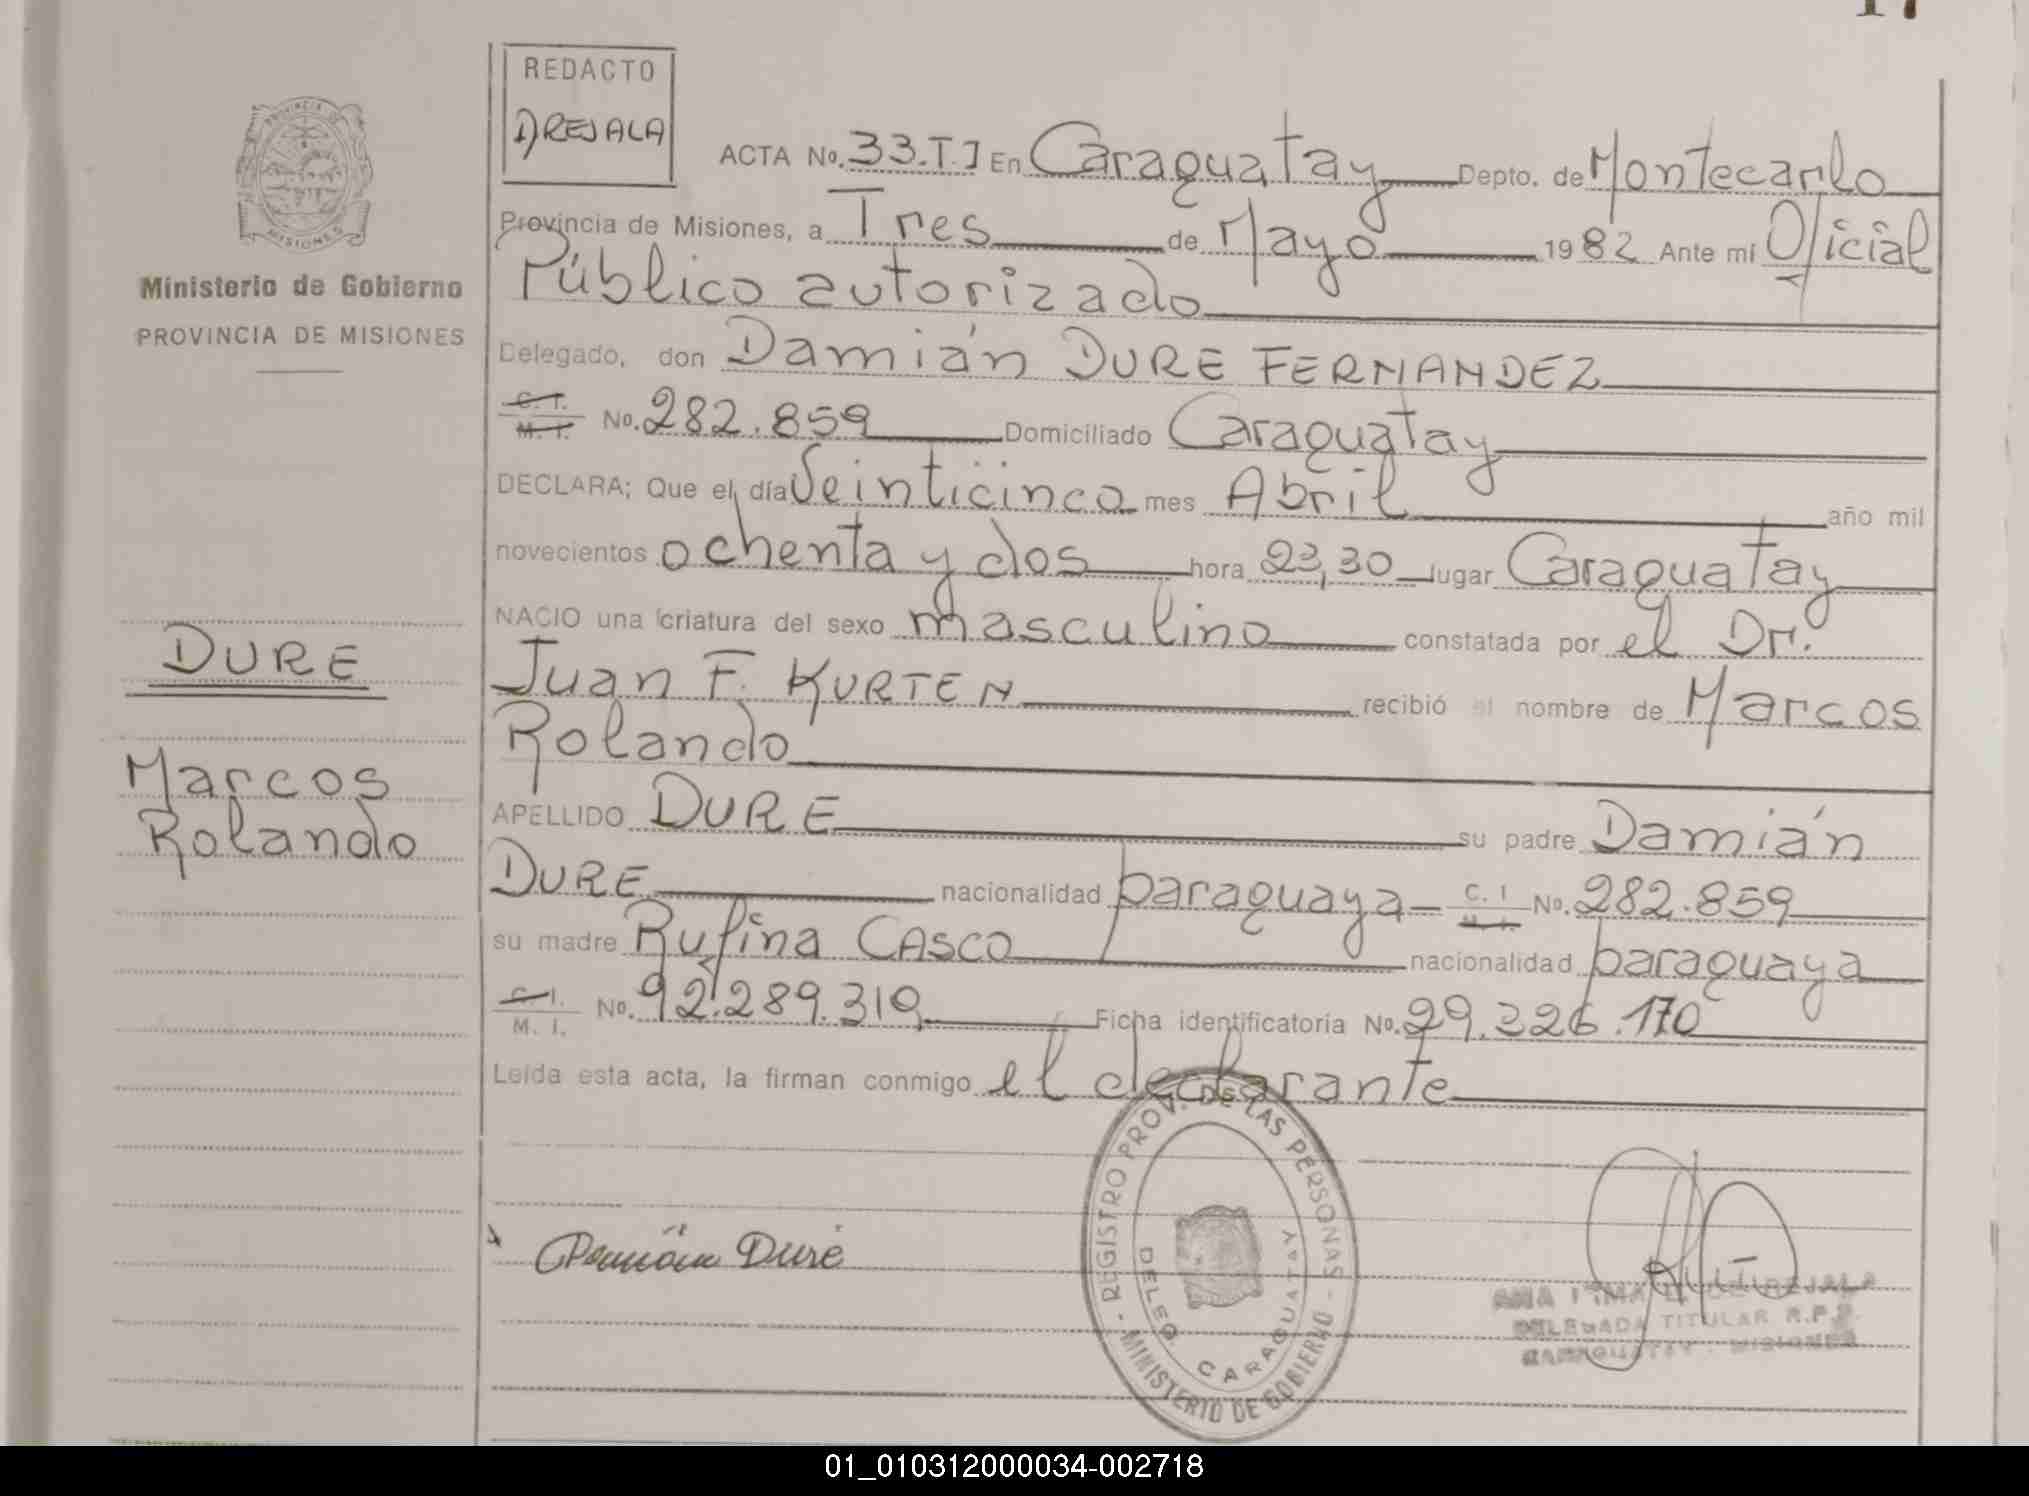 17
REDACTO
DREJALA
PROVINCIA DE
MISIONES
Ministerio de Gobierno
PROVINCIA DE MISIONES
DURE
Marcos
Rolando
ACTA No. 33.T.I En Caraguatay Depto. de Montecarlo
Provincia de Misiones, a Tres de Mayo 1982 Ante mi Oficial
Público autorizado
Delegado, don Damián DURE FERNANDEZ
C. I. M. I. No. 282.859 Domiciliado Caraguatay
DECLARA; Que el día Veinticinco mes Abril año mil
novecientos ochenta y dos hora 23,30 lugar Caraguatay
NACIO una criatura del sexo masculino constatada por el Dr.
Juan F. KURTEN recibió el nombre de Marcos
Rolando
APELLIDO DURE su padre Damián
DURE nacionalidad paraguaya C. I. M. I. No. 282.859
su madre Rufina CASCO nacionalidad paraguaya
C. I. M. I. No. 92.289.319 Ficha identificatoria No. 29.326.170
Leída esta acta, la firman conmigo el declarante
Damián Duré
REGISTRO PROV. DE LAS PERSONAS - MINISTERIO DE GOBIERNO -
DELEG. CARAGUATAY
ANA DE REJALA
DELEGADA TITULAR R.P.P.
CARAGUATAY - MISIONES
01_010312000034-002718